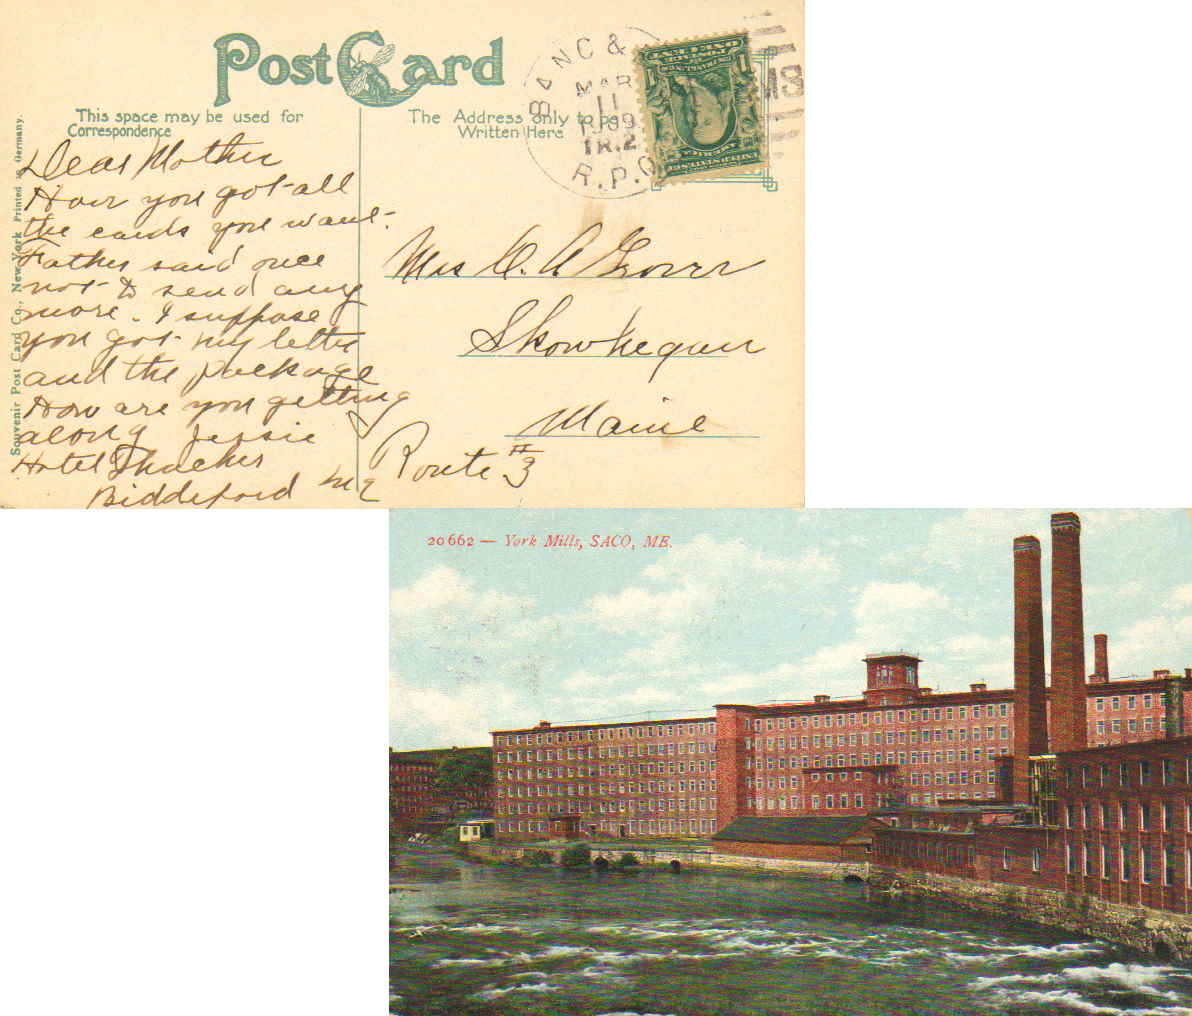 Post Card
This space may be used for
Correspondence
The Address only to be
Written Here
BANC &
MAR
11
1909
TR.2
R.P.O
Souvenir Post Card Co., New York Printed in Germany.
Dear Mother
Have you got all
the cards you want.
Father said once
not to send any
more. I suppose
you got my letter
and the package
How are you getting
along Jessie
Hotel Thacher
Biddeford Me
Mrs A
Skowhegan
Maine
Route #3
20662 — York Mills, SACO, ME.